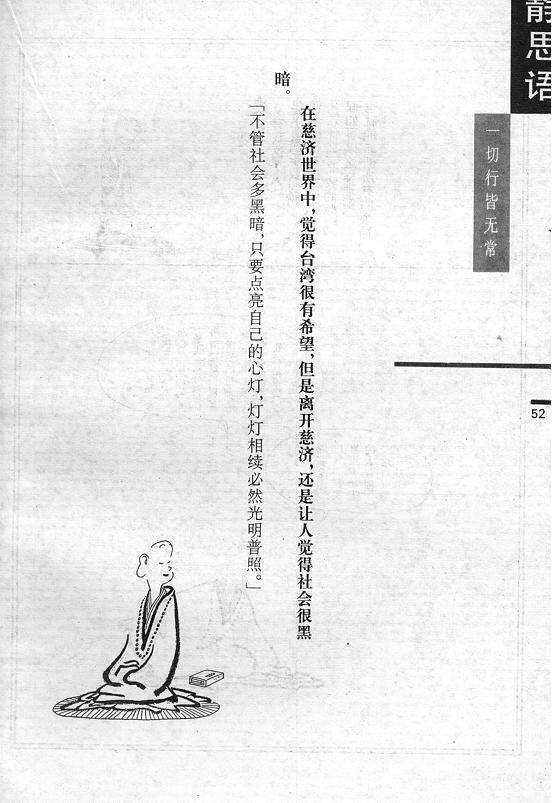 静思语
一切行皆无常
52
在慈济世界中，觉得台湾很有希望，但是离开慈济，还是让人觉得社会很黑
暗。
「不管社会多黑暗，只要点亮自己的心灯，灯灯相续必然光明普照。」